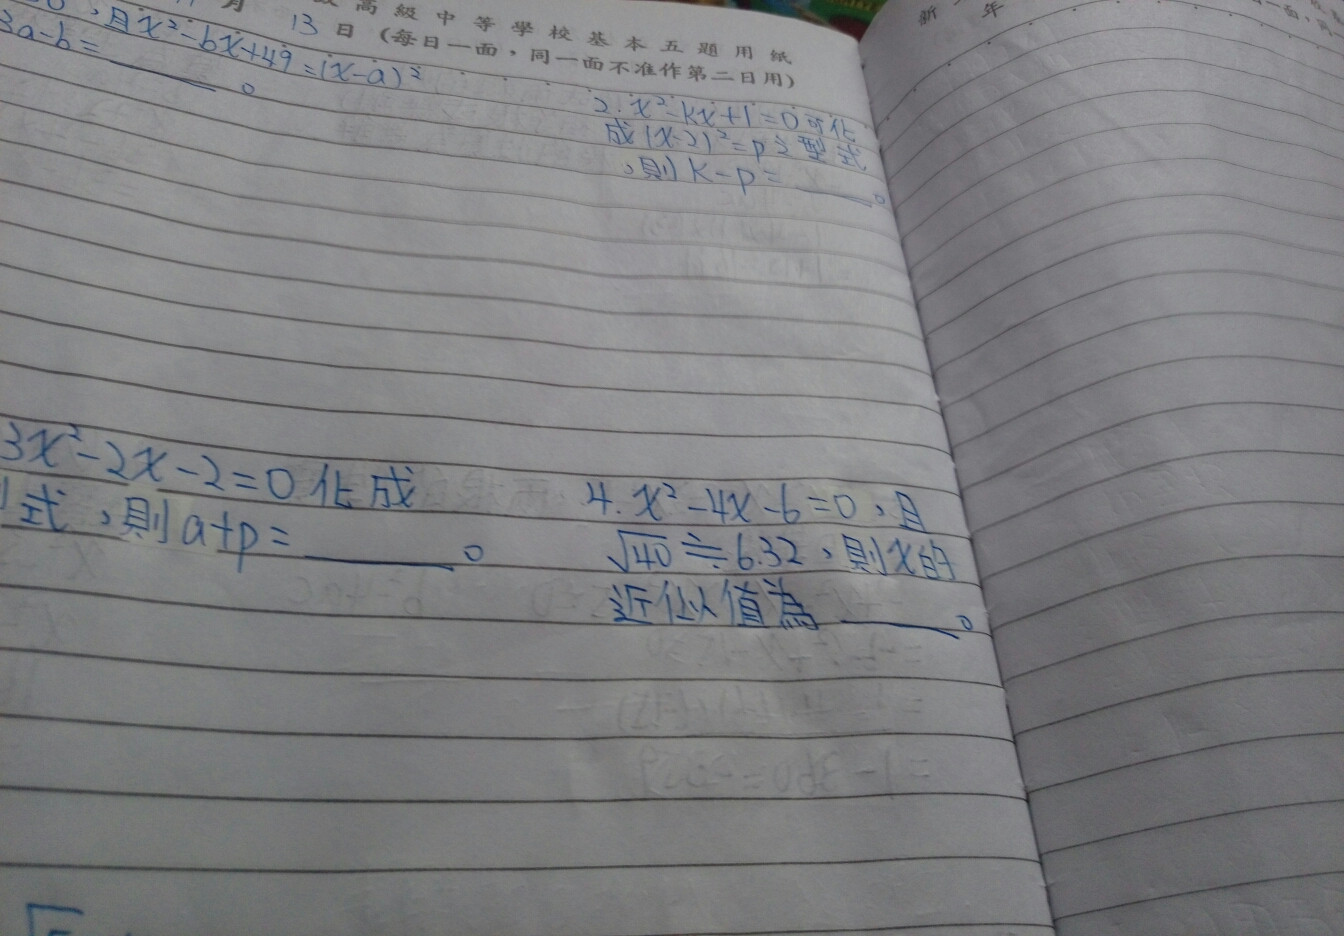 月 13 日 (每日一面，同一面不准作第二日用)
高級中等學校基本五題用紙
，且x²-bx+49=(x-a)²
3a-b=______。
2. x²-kx+1=0可化
成(x-2)²=p之型式
，則k-p=______。
3x²-2x-2=0化成
式，則a+p=______。
4. x²-4x-6=0，且
√40≒6.32，則x的
近似值為______。
新
年